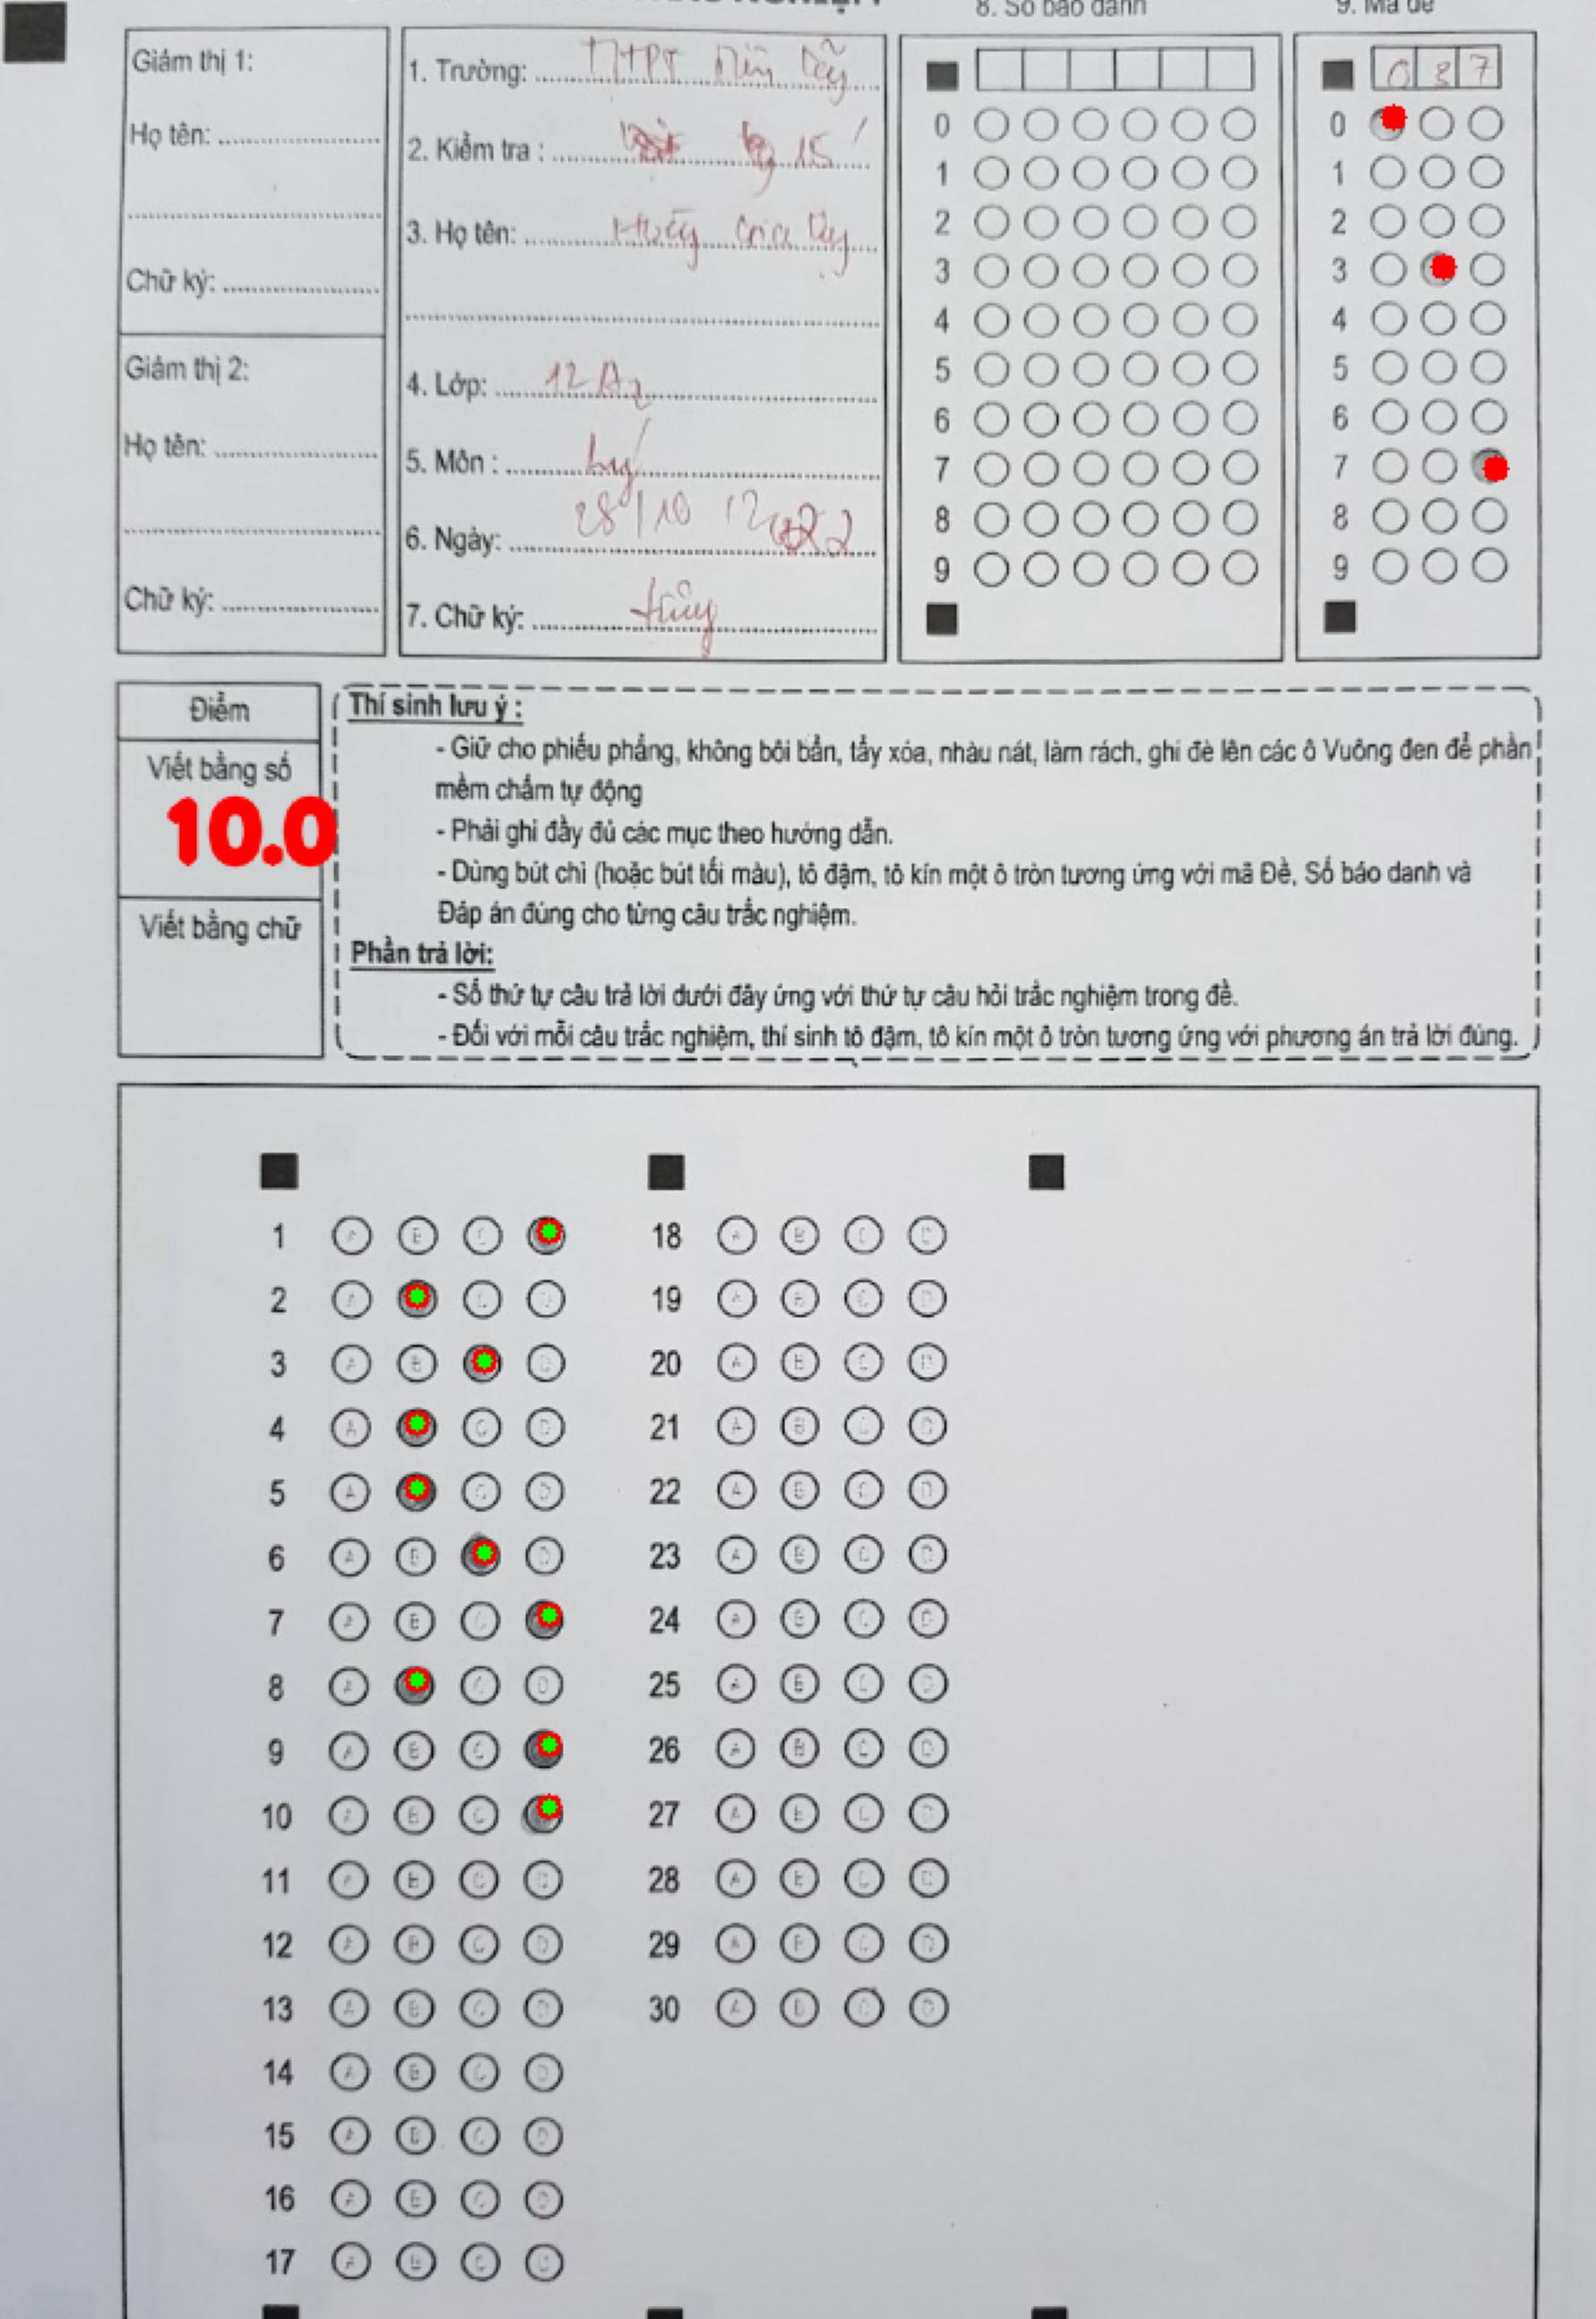 8. Số báo danh
9. Mã đề
Giám thị 1:
Họ tên:
Chữ ký:
Giám thị 2:
Họ tên:
Chữ ký:
1. Trường: THPT
2. Kiểm tra : 15'
3. Họ tên:
4. Lớp: 12A2
5. Môn : Lý
6. Ngày: 28/10
7. Chữ ký:
0
1
2
3
4
5
6
7
8
9
0 3 7
0
1
2
3
4
5
6
7
8
9
Điểm
Viết bằng số
10.0
Viết bằng chữ
Thí sinh lưu ý :
- Giữ cho phiếu phẳng, không bôi bẩn, tẩy xóa, nhàu nát, làm rách, ghi đè lên các ô Vuông đen để phần
mềm chấm tự động
- Phải ghi đầy đủ các mục theo hướng dẫn.
- Dùng bút chì (hoặc bút tối màu), tô đậm, tô kín một ô tròn tương ứng với mã Đề, Số báo danh và
Đáp án đúng cho từng câu trắc nghiệm.
Phần trả lời:
- Số thứ tự câu trả lời dưới đây ứng với thứ tự câu hỏi trắc nghiệm trong đề.
- Đối với mỗi câu trắc nghiệm, thí sinh tô đậm, tô kín một ô tròn tương ứng với phương án trả lời đúng.
1 A B C
2 A C D
3 A B D
4 A C D
5 A C D
6 A B D
7 A B C
8 A C D
9 A B C
10 A B C
11 A B C D
12 A B C D
13 A B C D
14 A B C D
15 A B C D
16 A B C D
17 A B C D
18 A B C D
19 A B C D
20 A B C D
21 A B C D
22 A B C D
23 A B C D
24 A B C D
25 A B C D
26 A B C D
27 A B C D
28 A B C D
29 A B C D
30 A B C D